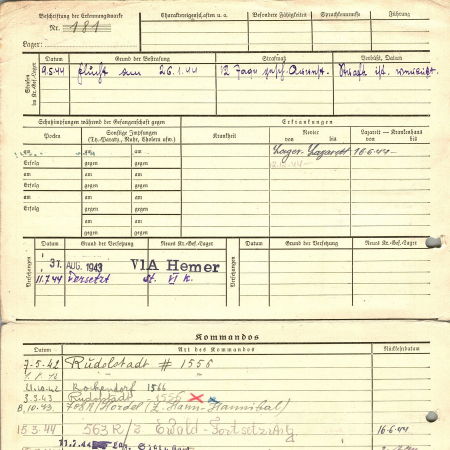 Beschriftung der Erkennungsmarke
Nr. 181
Lager:
Charaktereigenschaften u. a.
Besondere Fähigkeiten
Sprachkenntnisse
Führung
Strafen im Kr.-Gef.-Lager
Datum
Grund der Bestrafung
Strafmaß
Verbüßt, Datum
9.5.44
Flucht am 26.1.44
12 Tage gesch. Arrest.
Strafe ist verbüßt.
Schutzimpfungen während der Gefangenschaft gegen
Erkrankungen
Pocken
Sonstige Impfungen
(Ty.-Paraty., Ruhr, Cholera usw.)
Krankheit
Revier
von bis
Lazarett — Krankenhaus
von bis
am
am
Erfolg
gegen
gegen
am
am
am
Erfolg
gegen
gegen
am
am
gegen
gegen
am
am
Lager-Lazarett 16.6.44 —
Versetzungen
Datum
Grund der Versetzung
Neues Kr.-Gef.-Lager
Versetzungen
Datum
Grund der Versetzung
Neues Kr.-Gef.-Lager
31. AUG. 1943
VI A Hemer
11.7.44
Versetzt
St. VI K.
Kommandos
Datum
Art des Kommandos
Rückkehrdatum
7-5-42
Rudolstadt # 1556
1566
3.3.43
Rudolstadt 1556
15.3.44
563 R/2 Ewald-Fortsetzung
16-6-44